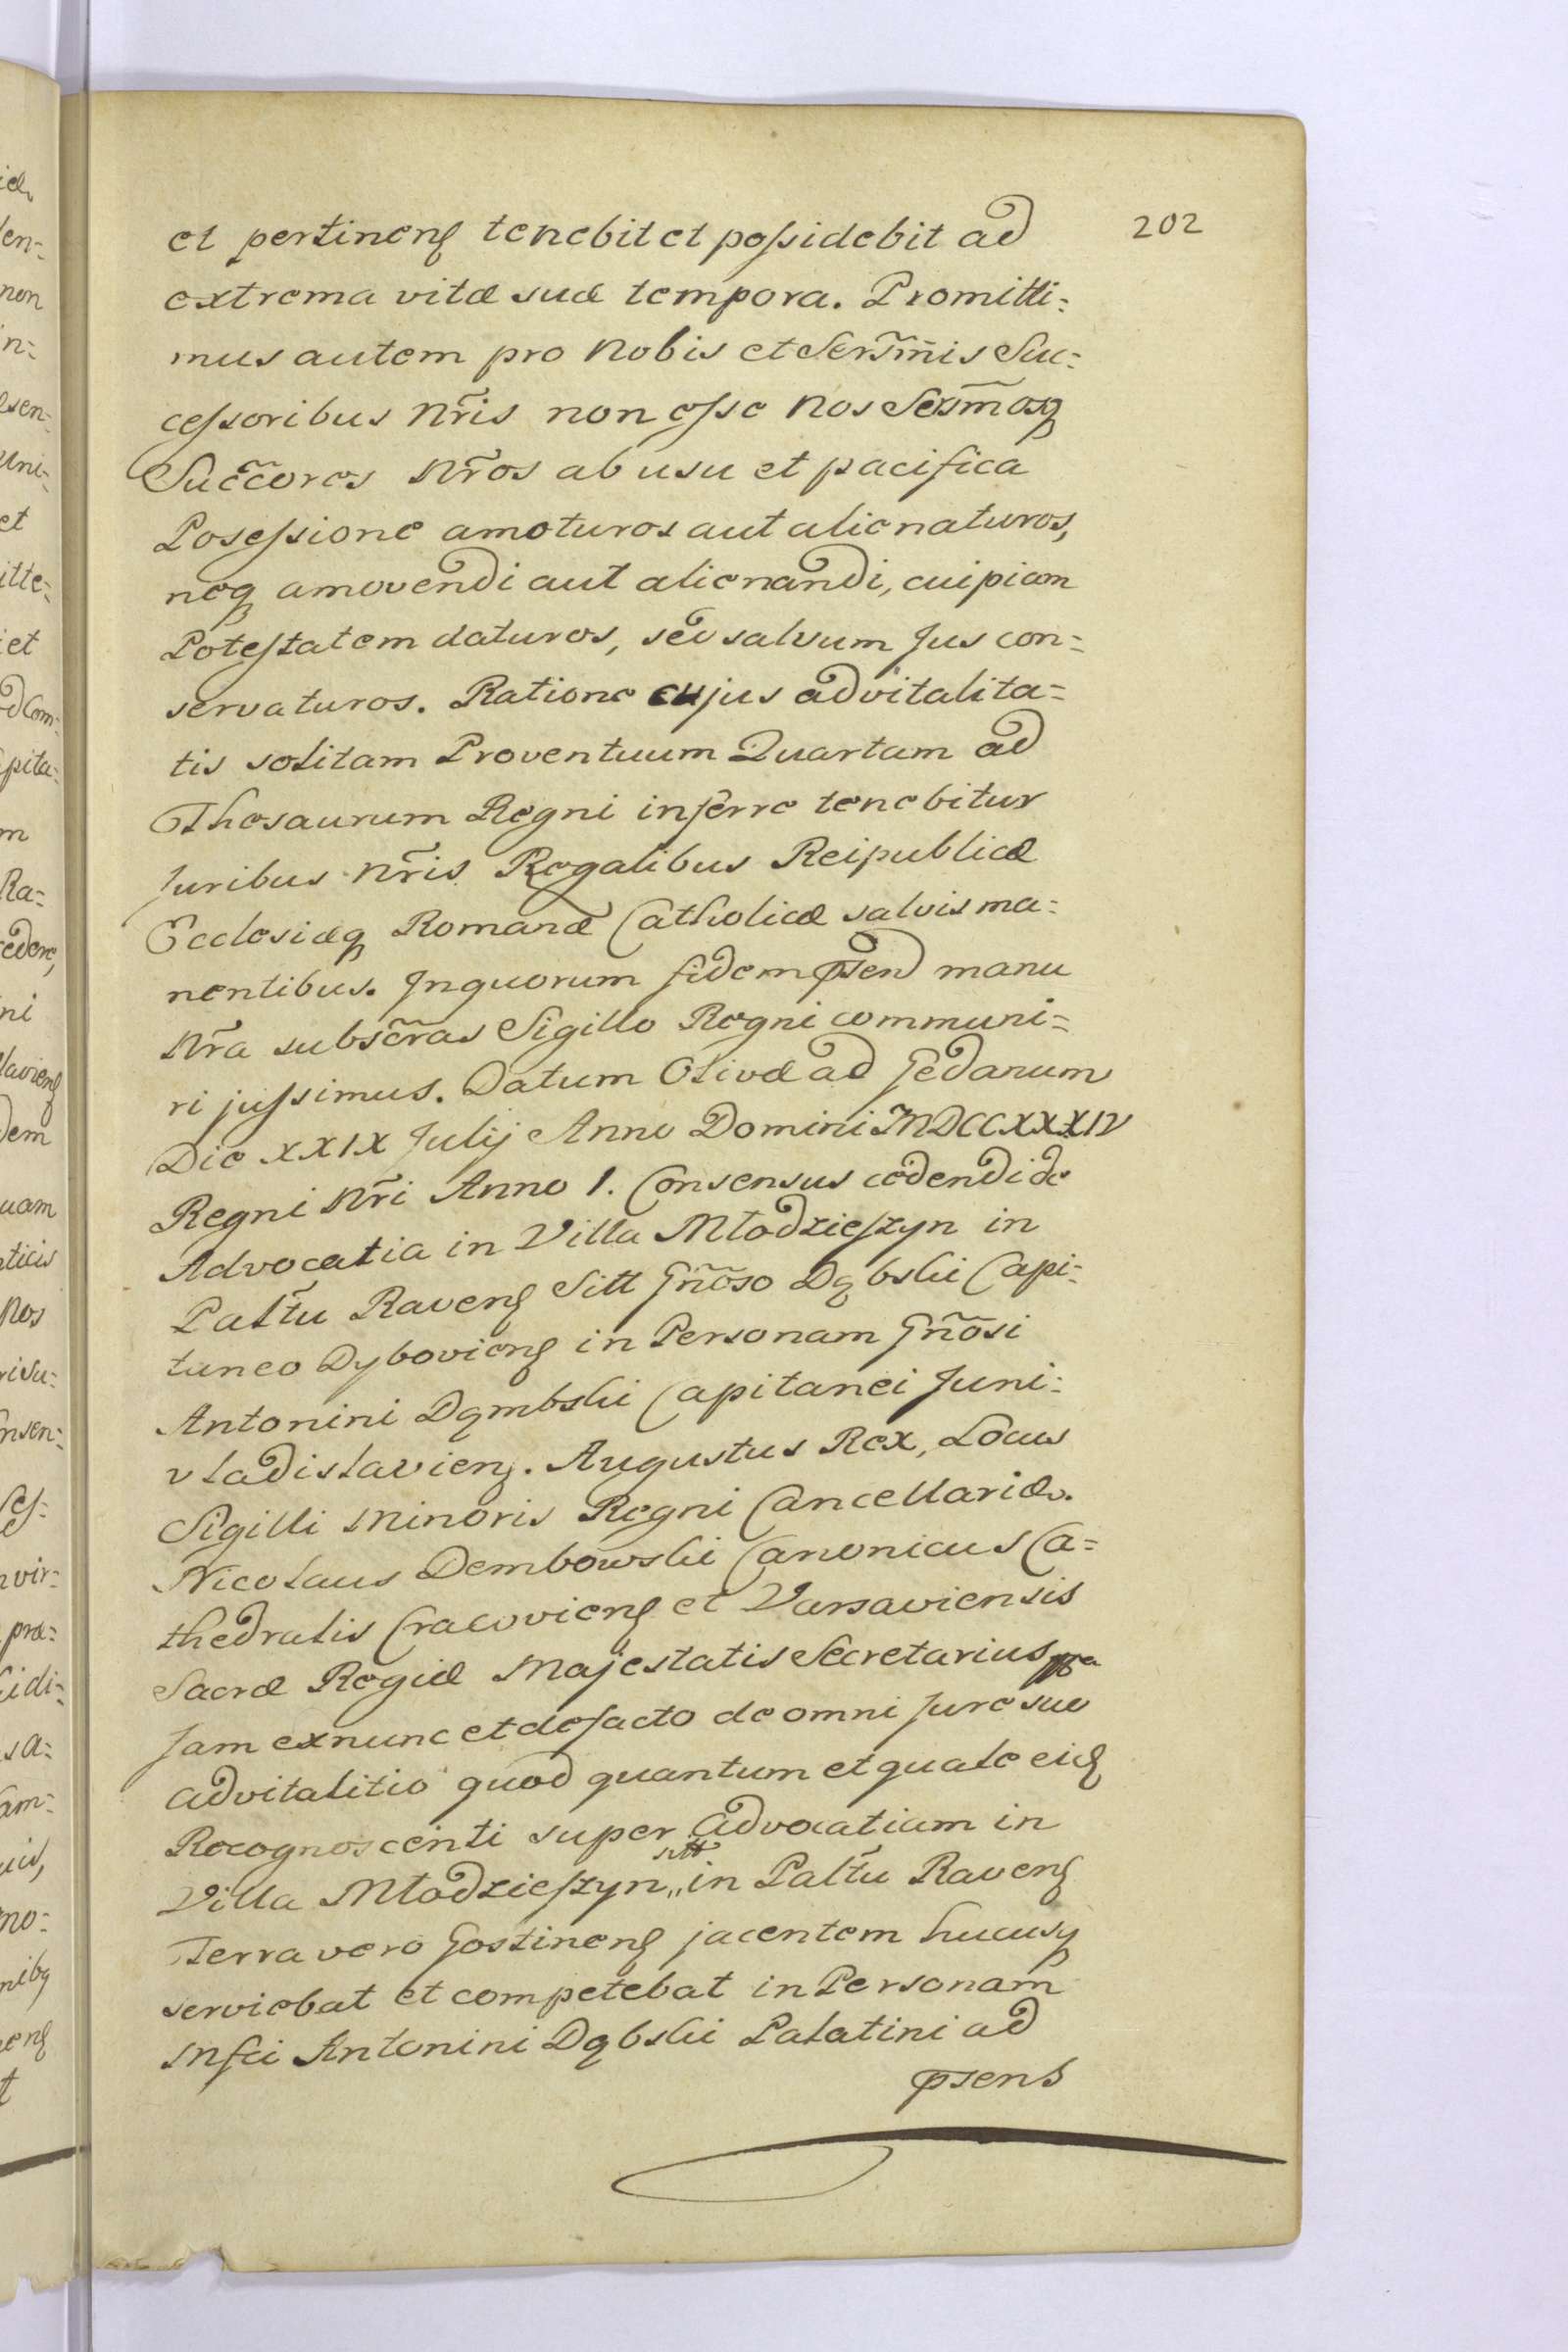 202
et pertinenſ tenebit et poſsidebit ad
extrema vitæ suæ tempora. Promitti=
mus autem pro Nobis et Sersm̃is Suc=
ceſsoribus Nr̃is non eſse Nos Sersm̃osq
Succ̃ores Nr̃os ab usu et pacifica
Poseſsione amoturos aut alienaturos,
neq amovendi aut alienandi, cuipiam
Poteſtatem daturos, seu salvum Jus con=
servaturos. Ratione cujus advitalita=
tis solitam Proventuum Quartam ad
Thesaurum Regni inferre tenebitur
Juribus Nr̃is Regalibus Reipublicæ
Ecclesiæq Romanæ Catholicæ salvis ma=
nentibus. In quorum fidem pr̃sen manu
Nr̃a subscr̃as Sigillo Regni communi=
ri juſsimus. Datum Olivæ ad Gedanum
Die XXIX Julij Anno Domini MDCCXXXIV
Regni Nr̃i Anno 1. Consensus cedendi de
Advocatia in Villa Młodzieſzyn in
Palt̃u Ravenſ Sitt Gñoso Dąbski Capi=
taneo Dybovienſ in Personam Gñosi
Antonini Dąmbski Capitanei Juni=
vladislavienſ. Augustus Rex, Locus
Sigilli Minoris Regni Cancellariæ.
Nicolaus Dembowski Canonicus Ca=
thedralis Cracovienſ et Varsaviensis
Sacræ Regiæ Majestatis Secretarius
Jam exnunc et defacto de omni Jure suo
advitalitio quod quantum et quale eidſ
Recognoscenti super Advocatiam in
Villa Młodzieſzyn sitt in Palt̃u Ravenſ
Terra vero Gostinenſ jacentem hucusq
serviebat et competebat in Personam
Mſci Antonini Dąbski Palatini ad
pr̃sens